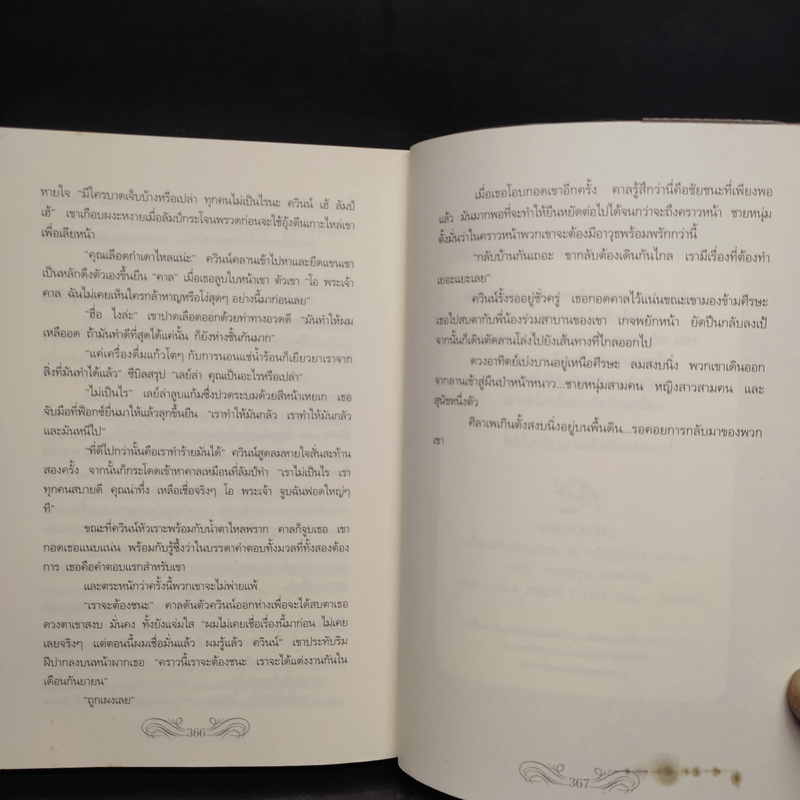 หายใจ “มีใครบาดเจ็บบ้างหรือเปล่า ทุกคนไม่เป็นไรนะ ควินน์ เฮ้ ลัมป์
เฮ้” เขาเกือบผงะหงายเมื่อลัมป์กระโจนพรวดก่อนจะใช้อุ้งตีนเกาะไหล่เขา
เพื่อเลียหน้า
“คุณเลือดกำเดาไหลแน่ะ” ควินน์คลานเข้าไปหาและยึดแขนเขา
เป็นหลักดึงตัวเองขึ้นยืน “คาล” เมื่อเธอลูบใบหน้าเขา ตัวเขา “โอ พระเจ้า
คาล ฉันไม่เคยเห็นใครกล้าหาญหรือโง่สุดๆ อย่างนี้มาก่อนเลย”
“ฮื่อ ไงล่ะ” เขาปาดเลือดออกด้วยท่าทางอวดดี “มันทำให้ผม
เหลืออด ถ้ามันทำดีที่สุดได้แค่นั้น ก็ยังห่างชั้นกันมาก”
“แค่เครื่องดื่มแก้วโตๆ กับการนอนแช่น้ำร้อนก็เยียวยาเราจาก
สิ่งที่มันทำได้แล้ว” ซีบิลสรุป “เลย์ล่า คุณเป็นอะไรหรือเปล่า”
“ไม่เป็นไร” เลย์ล่าลูบแก้มซึ่งปวดระบมด้วยสีหน้าเหยเก เธอ
จับมือที่ฟ็อกซ์ยื่นมาให้แล้วลุกขึ้นยืน “เราทำให้มันกลัว เราทำให้มันกลัว
และมันหนีไป”
“ที่ดีไปกว่านั้นคือเราทำร้ายมันได้” ควินน์สูดลมหายใจสั่นสะท้าน
สองครั้ง จากนั้นก็กระโดดเข้าหาคาลเหมือนที่ลัมป์ทำ “เราไม่เป็นไร เรา
ทุกคนสบายดี คุณน่าทึ่ง เหลือเชื่อจริงๆ โอ พระเจ้า จูบฉันฟอดใหญ่ๆ
ที”
ขณะที่ควินน์หัวเราะพร้อมกับน้ำตาไหลพราก คาลก็จูบเธอ เขา
กอดเธอแนบแน่น พร้อมกับรู้ซึ้งว่าในบรรดาคำตอบทั้งมวลที่ทั้งสองต้อง
การ เธอคือคำตอบแรกสำหรับเขา
และตระหนักว่าครั้งนี้พวกเขาจะไม่พ่ายแพ้
“เราจะต้องชนะ” คาลดันตัวควินน์ออกห่างเพื่อจะได้สบตาเธอ
ดวงตาเขาสงบ มั่นคง ทั้งยังแจ่มใส “ผมไม่เคยเชื่อเรื่องนี้มาก่อน ไม่เคย
เลยจริงๆ แต่ตอนนี้ผมเชื่อมั่นแล้ว ผมรู้แล้ว ควินน์” เขาประทับริม
ฝีปากลงบนหน้าผากเธอ “คราวนี้เราจะต้องชนะ เราจะได้แต่งงานกันใน
เดือนกันยายน”
“ถูกเผงเลย”
366
เมื่อเธอโอบกอดเขาอีกครั้ง คาลรู้สึกว่านี่คือชัยชนะที่เพียงพอ
แล้ว มันมากพอที่จะทำให้ยืนหยัดต่อไปได้จนกว่าจะถึงคราวหน้า ชายหนุ่ม
ตั้งมั่นว่าในคราวหน้าพวกเขาจะต้องมีอาวุธพร้อมพรักกว่านี้
“กลับบ้านกันเถอะ ขากลับต้องเดินกันไกล เรามีเรื่องที่ต้องทำ
เยอะแยะเลย”
ควินน์รั้งรออยู่ชั่วครู่ เธอกอดคาลไว้แน่นขณะเขามองข้ามศีรษะ
เธอไปสบตากับพี่น้องร่วมสาบานของเขา เกจพยักหน้า ยัดปืนกลับลงเป้
จากนั้นก็เดินตัดลานโล่งไปยังเส้นทางที่ไกลออกไป
ดวงอาทิตย์เปล่งบานอยู่เหนือศีรษะ ลมสงบนิ่ง พวกเขาเดินออก
จากลานเข้าสู่ผืนป่าหน้าหนาว...ชายหนุ่มสามคน หญิงสาวสามคน และ
สุนัขหนึ่งตัว
ศิลาเพเกินตั้งสงบนิ่งอยู่บนพื้นดิน...รอคอยการกลับมาของพวก
เขา
367